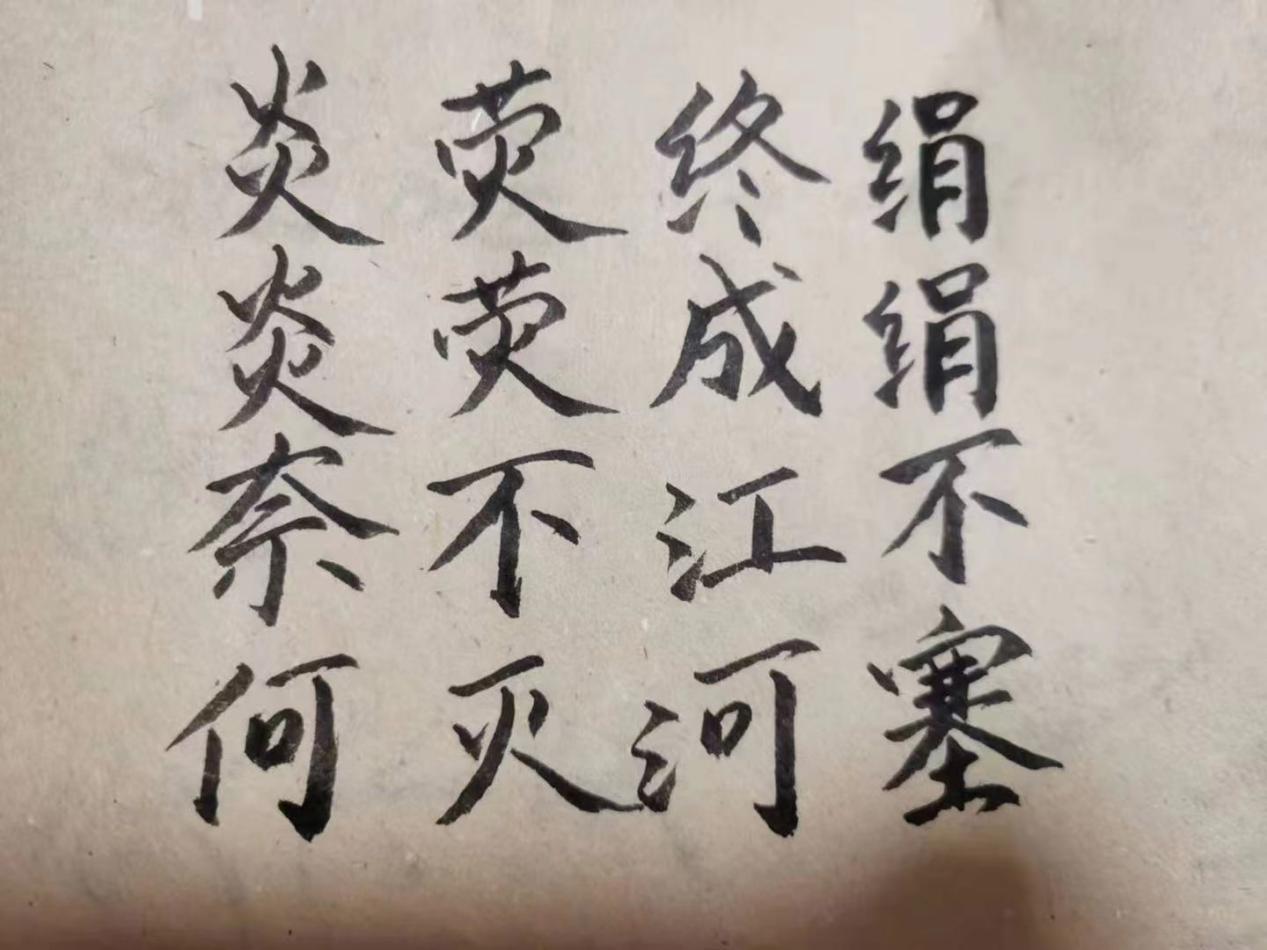 绢绢不塞
终成江河
荧荧不灭
炎炎奈何